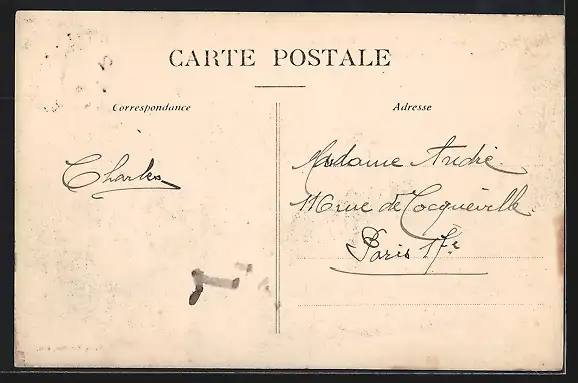 CARTE POSTALE
Correspondance
Adresse
Charles
Madame André
116 rue de Tocquéville.
Paris 17e